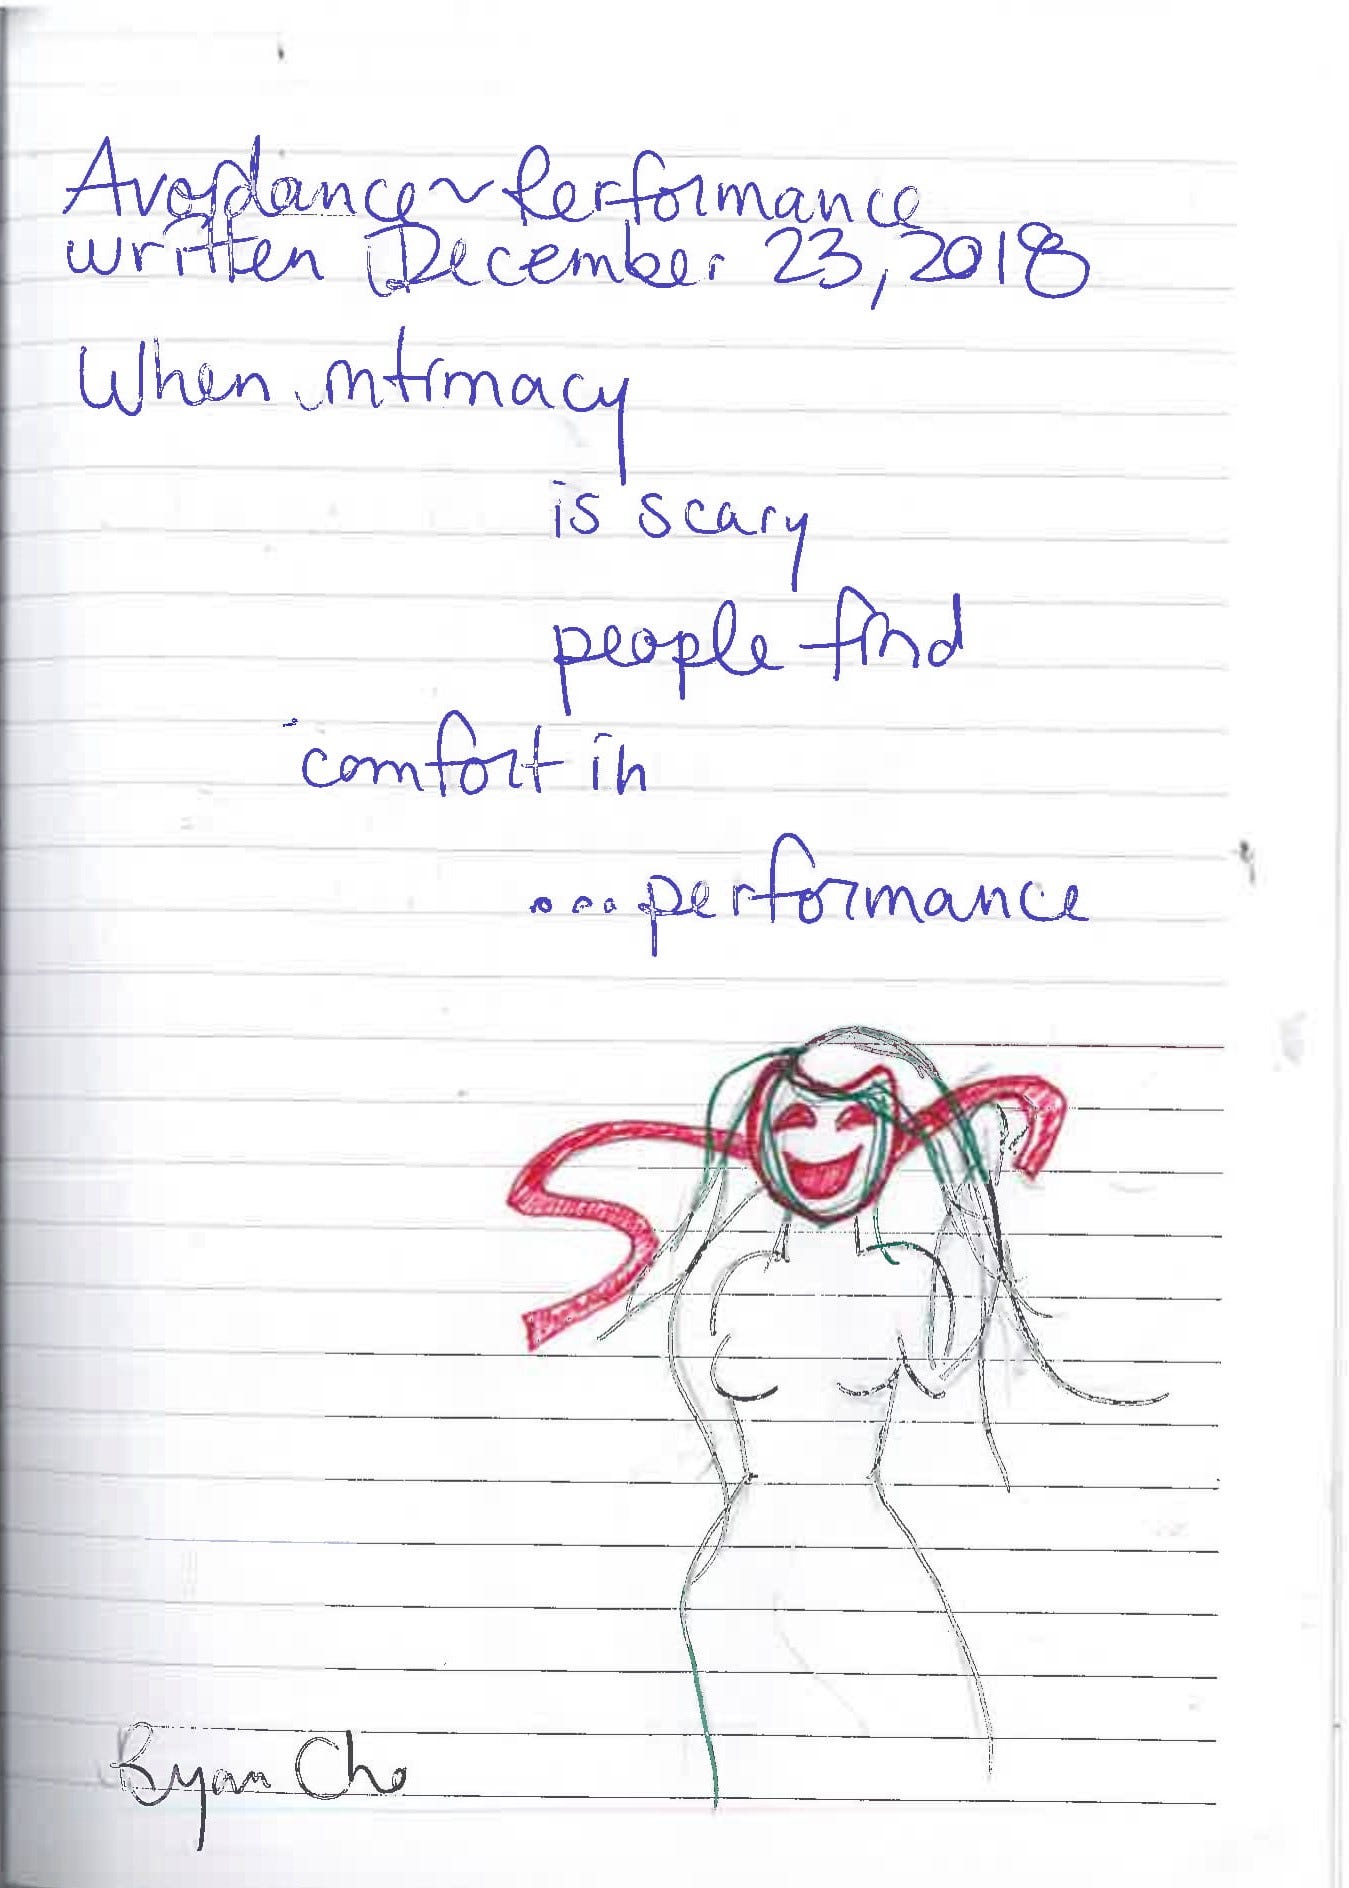 Avoidance~Performance
written December 23, 2018
When intimacy
is scary
people find
comfort in
...performance
Ryan Cho